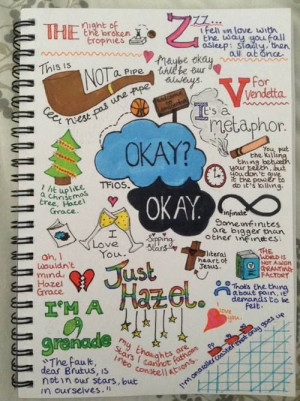 THE night of
the broken
trophies
Zzz...
I fell in love with
the way you fall
asleep: Slowly, then
all at once.
THIS IS
NOT a PIPE
Ceci n'est pas une pipe
Maybe okay
will be our
always.
V for
Vendetta
It's a
metaphor.
You put
the killing
thing between
your teeth, but
you don't give
it the power to
do it's killing.
OKAY?
OKAY.
TFIOS.
I lit up like
a christmas
tree, Hazel
Grace.
infinite
Some infinites
are bigger than
other infinites.
I
Love
You.
Sipping
Stars
literal
heart of
Jesus.
THE
WORLD IS
NOT A WISH
GRANTING
FACTORY
Oh, I
wouldn't
mind,
Hazel
Grace
Just
Hazel.
That's the thing
about pain, it
demands to be
felt.
I'M A
grenade
my thoughts are
stars I cannot fathom
into constellations.
I'm on a roller coaster that only goes up
"The fault,
dear Brutus, is
not in our stars, but
in ourselves."